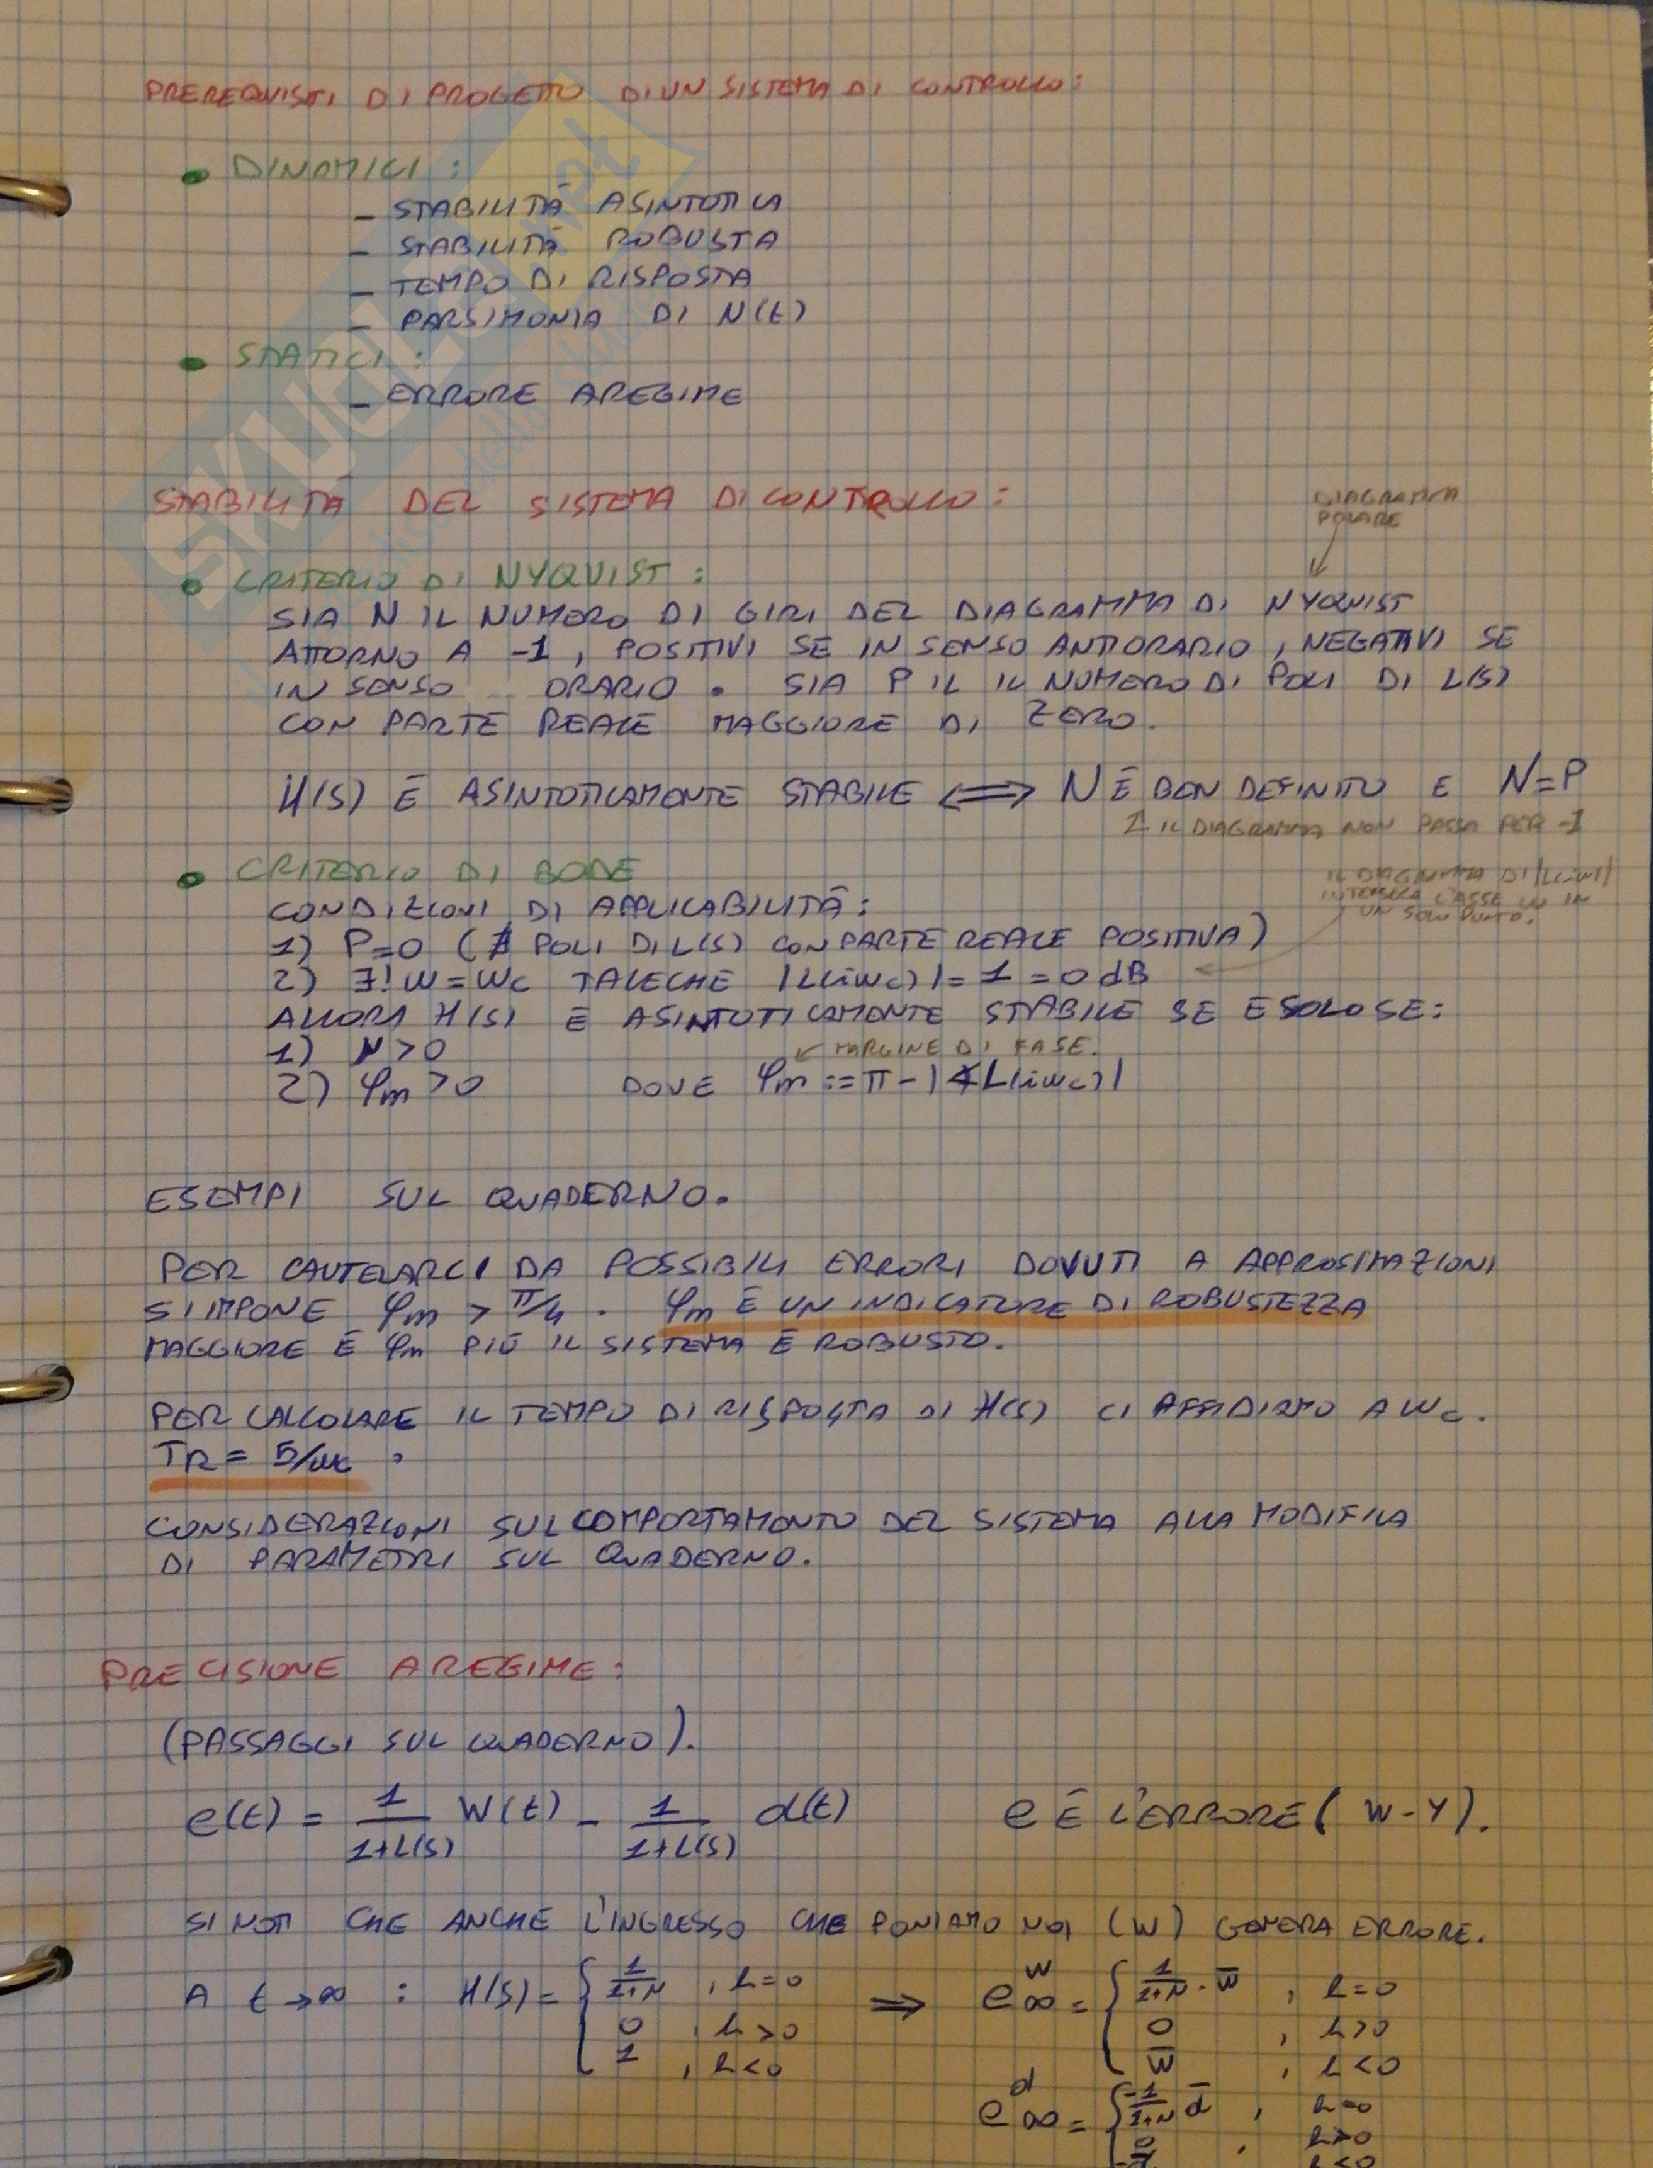 PREREQUISITI DI PROGETTO DI UN SISTEMA DI CONTROLLO:
• DINAMICI:
- STABILITÀ ASINTOTICA
- STABILITÀ ROBUSTA
- TEMPO DI RISPOSTA
- PARSIMONIA DI N(t)
• STATICI:
- ERRORE A REGIME
STABILITÀ DEL SISTEMA DI CONTROLLO:
DIAGRAMMA
POLARE
• CRITERIO DI NYQUIST:
SIA N IL NUMERO DI GIRI DEL DIAGRAMMA DI NYQUIST
ATTORNO A -1, POSITIVI SE IN SENSO ANTIORARIO, NEGATIVI SE
IN SENSO ORARIO. SIA P IL IL NUMERO DI POLI DI L(S)
CON PARTE REALE MAGGIORE DI ZERO.
H(S) È ASINTOTICAMENTE STABILE ⟺ N È BEN DEFINITO E N=P
IL DIAGRAMMA NON PASSA PER -1
• CRITERIO DI BODE
IL DIAGRAMMA DI |L(iω)|
INTERSECA L'ASSE ω IN
UN SOLO PUNTO.
CONDIZIONI DI APPLICABILITÀ:
1) P=0 (∄ POLI DI L(S) CON PARTE REALE POSITIVA)
2) ∃! ω=ωc TALE CHE |L(iωc)|=1=0 dB
ALLORA H(S) È ASINTOTICAMENTE STABILE SE E SOLO SE:
1) μ>0
MARGINE DI FASE.
2) φm>0 DOVE φm:=π-|∢L(iωc)|
ESEMPI SUL QUADERNO.
PER CAUTELARCI DA POSSIBILI ERRORI DOVUTI A APPROSSIMAZIONI
SI IMPONE φm > π/4. φm È UN INDICATORE DI ROBUSTEZZA
MAGGIORE È φm PIÙ IL SISTEMA È ROBUSTO.
PER CALCOLARE IL TEMPO DI RISPOSTA DI H(S) CI AFFIDIAMO A ωc.
TR = 5/ωc.
CONSIDERAZIONI SUL COMPORTAMENTO DEL SISTEMA ALLA MODIFICA
DI PARAMETRI SUL QUADERNO.
PRECISIONE A REGIME:
(PASSAGGI SUL QUADERNO).
e(t) = 1/(1+L(S)) W(t) - 1/(1+L(S)) d(t) e È L'ERRORE (W-Y).
SI NOTI CHE ANCHE L'INGRESSO CHE PONIAMO NOI (W) GENERA ERRORE.
A t→∞ : H(S) = { 1/(1+μ), h=0 ⟹ e∞^W = { 1/(1+μ) · W̅, h=0
0, h>0 0, h>0
1, h<0 W̅, h<0
e∞^d = { -1/(1+μ) d̅, h=0
0, h>0
h<0